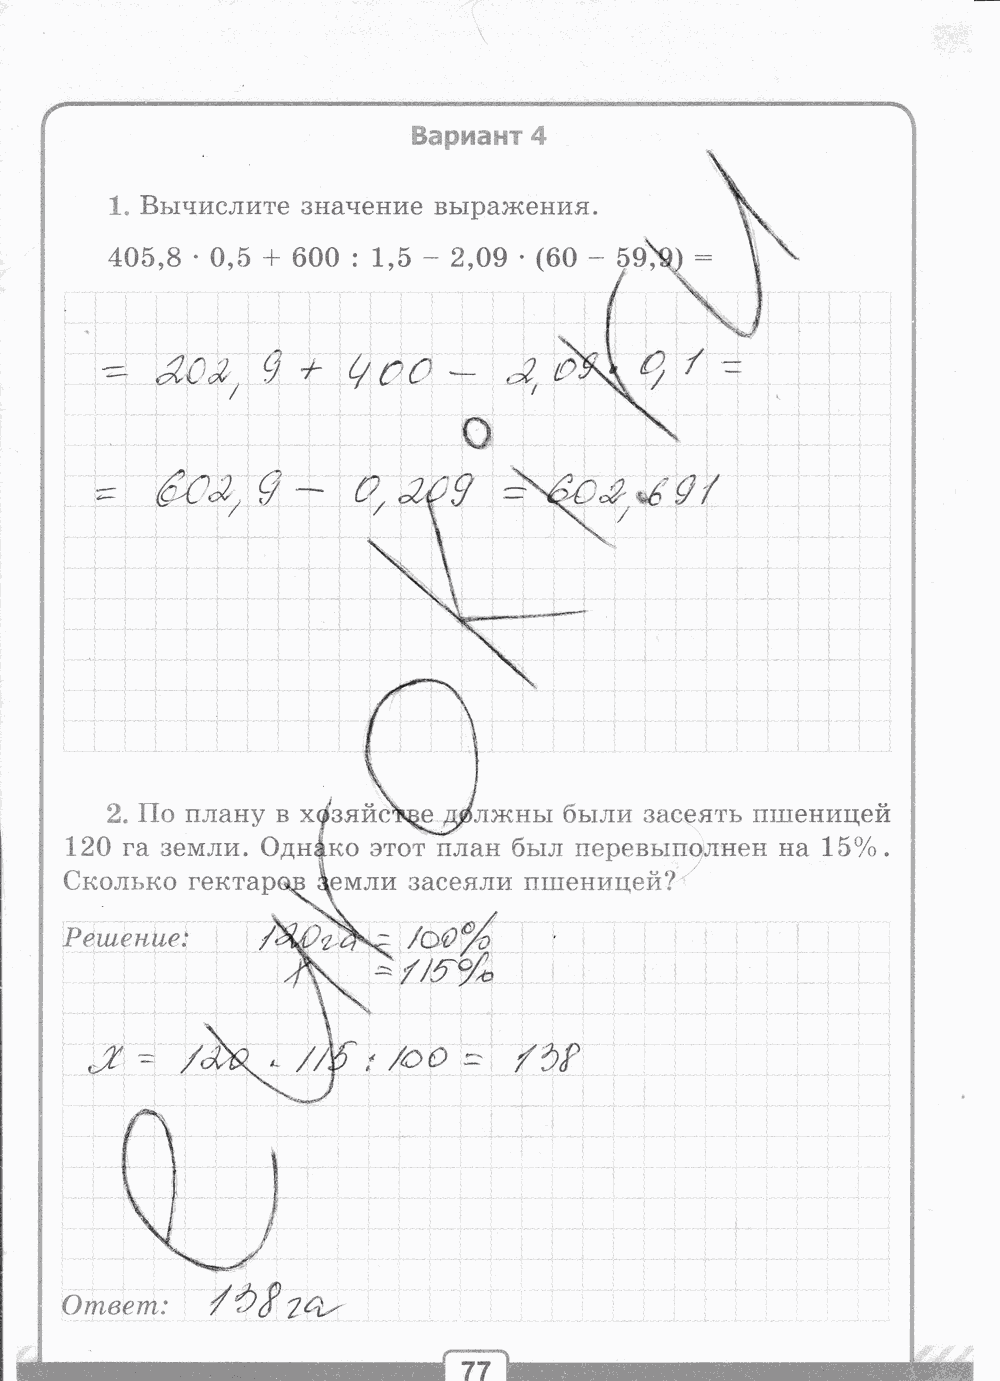 Вариант 4
1. Вычислите значение выражения.
405,8 · 0,5 + 600 : 1,5 − 2,09 · (60 − 59,9) =
= 202,9 + 400 − 2,09 · 0,1 =
= 602,9 − 0,209 = 602,691
2. По плану в хозяйстве должны были засеять пшеницей
120 га земли. Однако этот план был перевыполнен на 15%.
Сколько гектаров земли засеяли пшеницей?
Решение: 120га = 100%
х = 115%
х = 120 · 115 : 100 = 138
Ответ: 138га
77